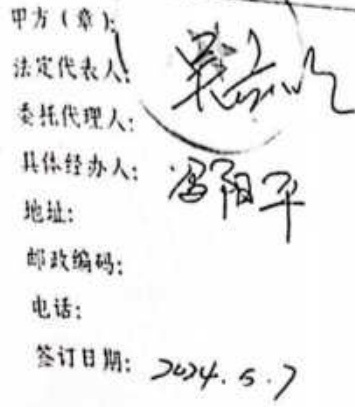 甲方（章）：
法定代表人：
委托代理人：
具体经办人：冯阳平
地址：
邮政编码：
电话：
签订日期：2024.5.7